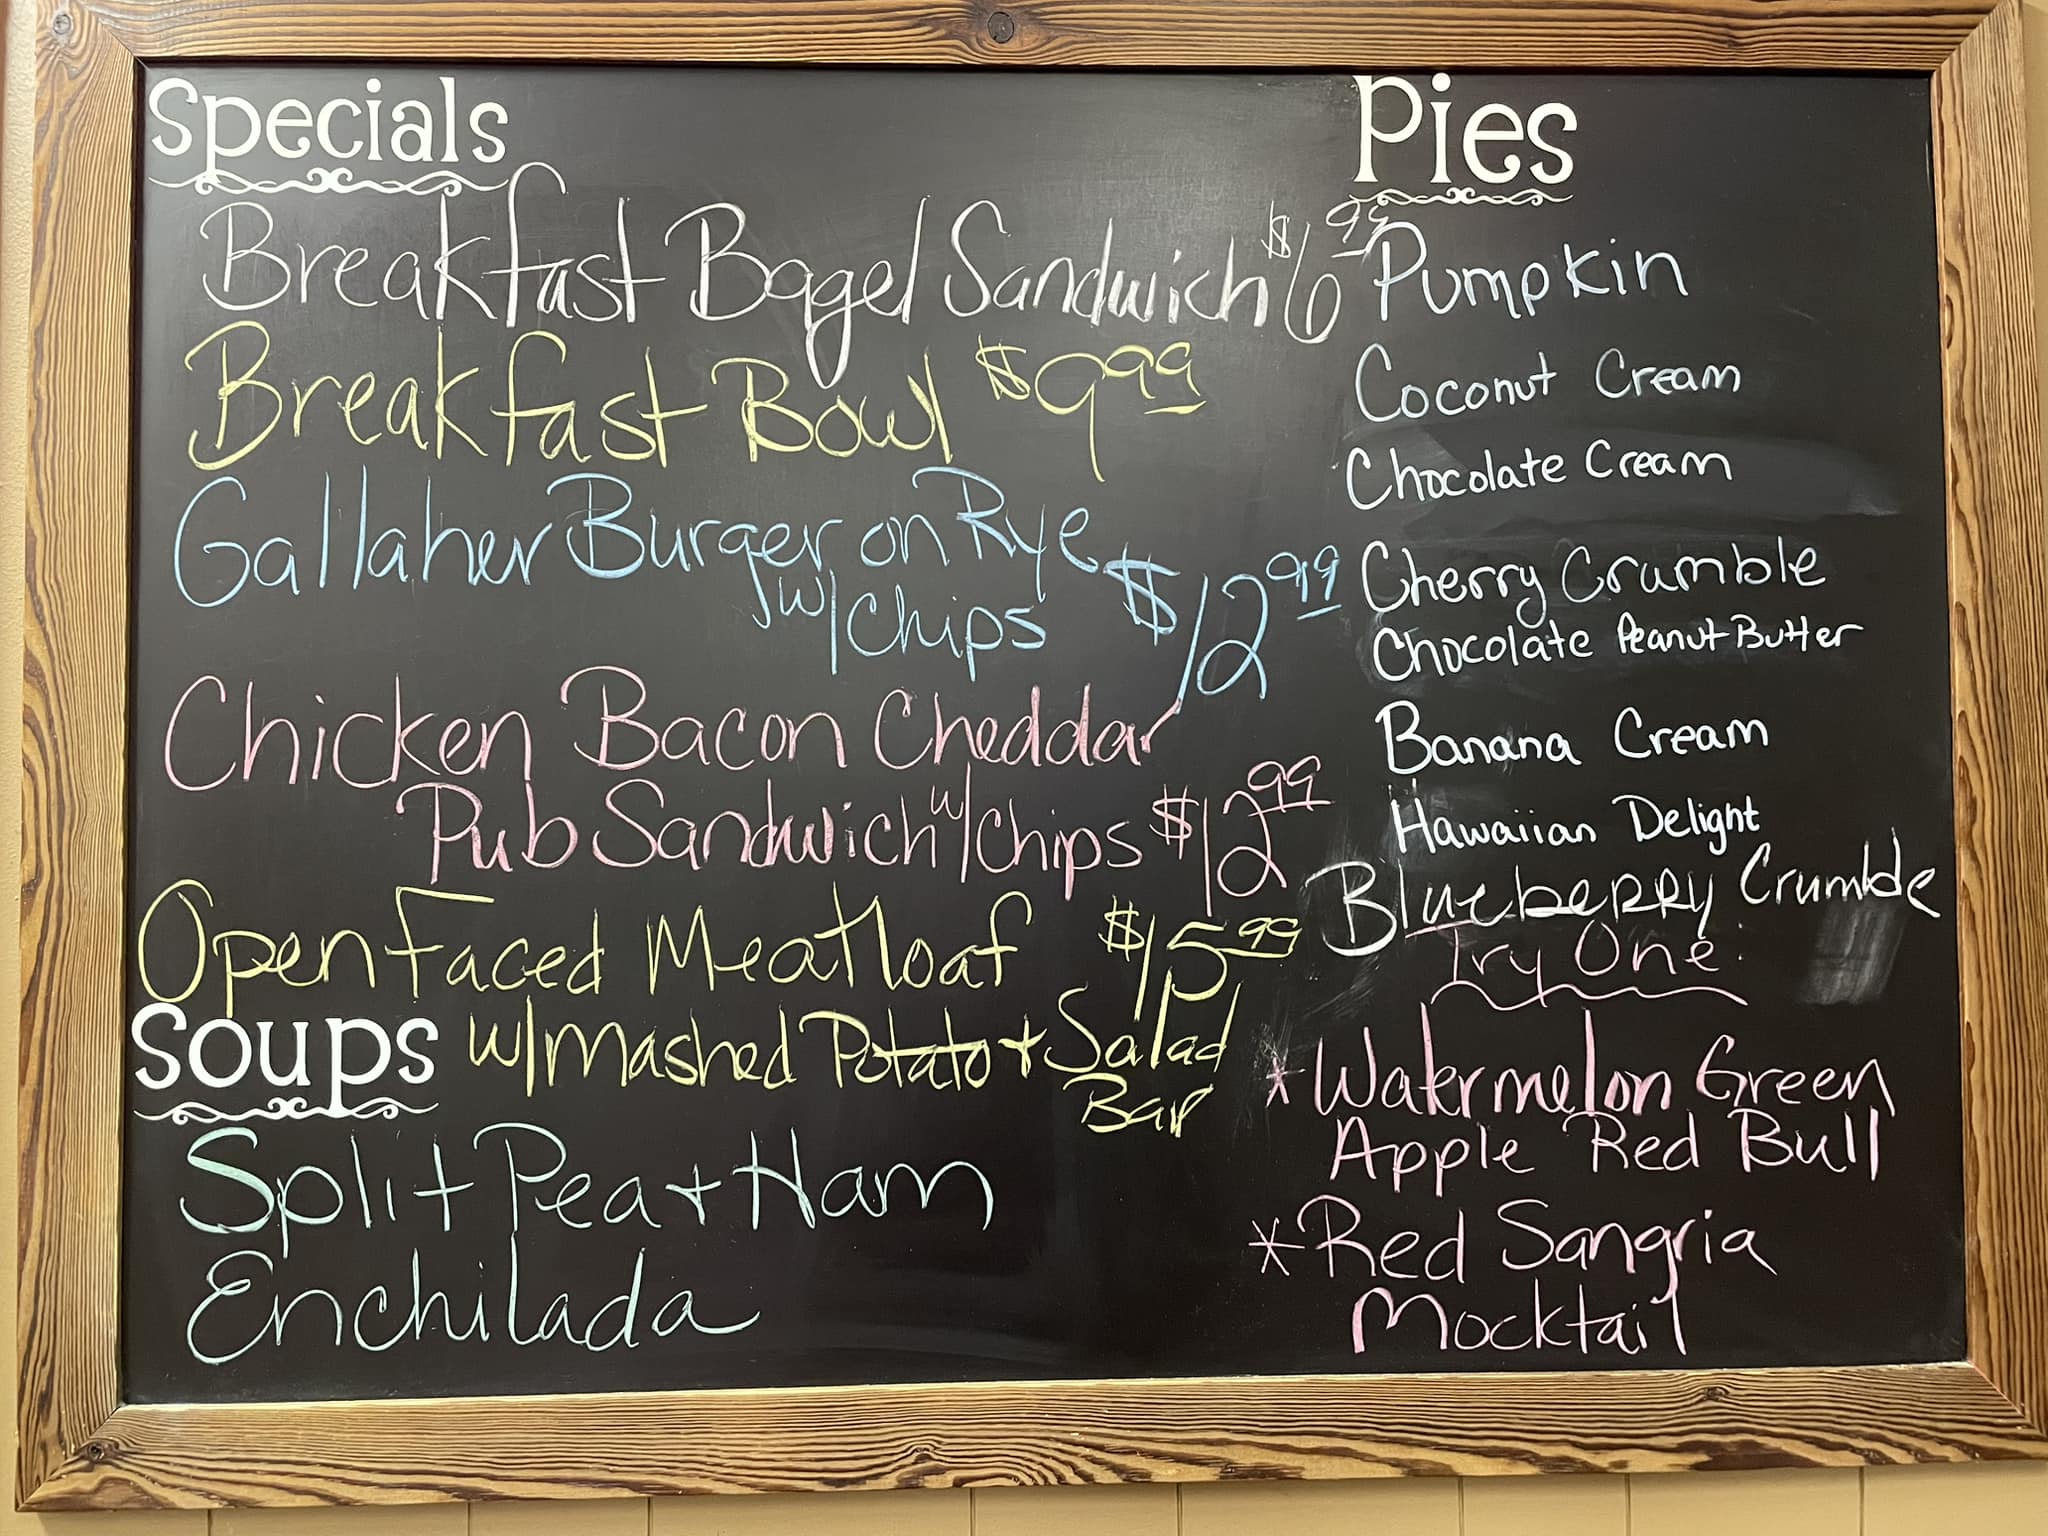 Specials
Breakfast Bagel Sandwich $6.99
Breakfast Bowl $9.99
Gallaher Burger on Rye
w/chips $12.99
Chicken Bacon Cheddar
Pub Sandwich w/chips $12.99
Open Faced Meatloaf $15.99
w/mashed Potato + Salad
Bar
Soups
Split Pea + Ham
Enchilada
Pies
Pumpkin
Coconut Cream
Chocolate Cream
Cherry Crumble
Chocolate Peanut Butter
Banana Cream
Hawaiian Delight
Blueberry Crumble
Try One:
* Watermelon Green
Apple Red Bull
* Red Sangria
Mocktail